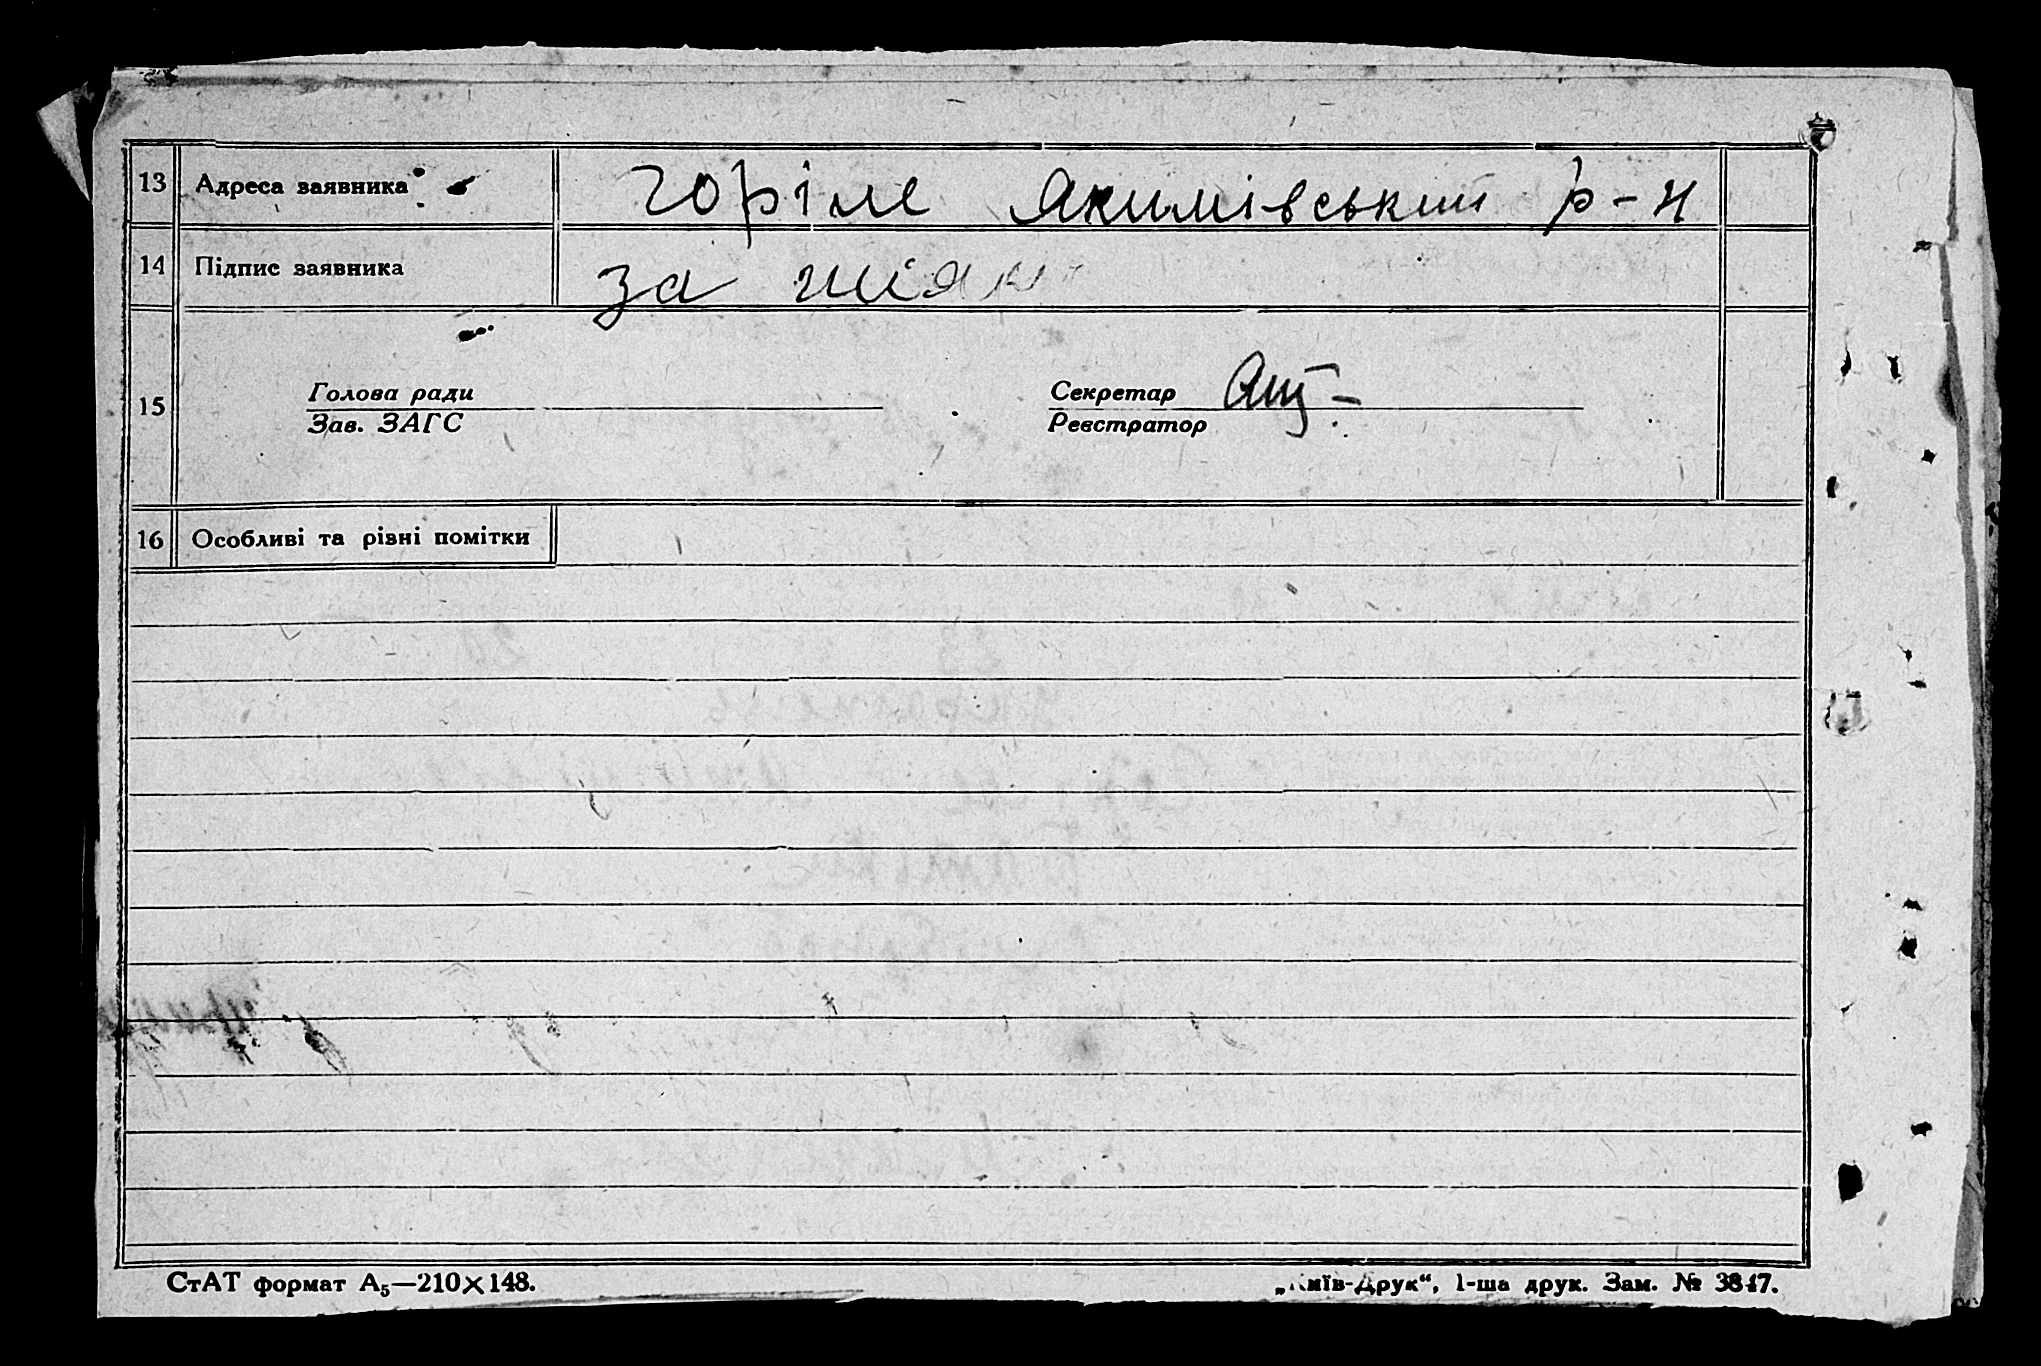 13 Адреса заявника Горіле Якимівський р-н
14 Підпис заявника за
15 Голова ради Секретар
Зав. ЗАГС Реєстратор
16 Особливі та різні помітки
СтАТ формат А₅—210×148. „Київ-Друк“, 1-ша друк. Зам. № 3847.